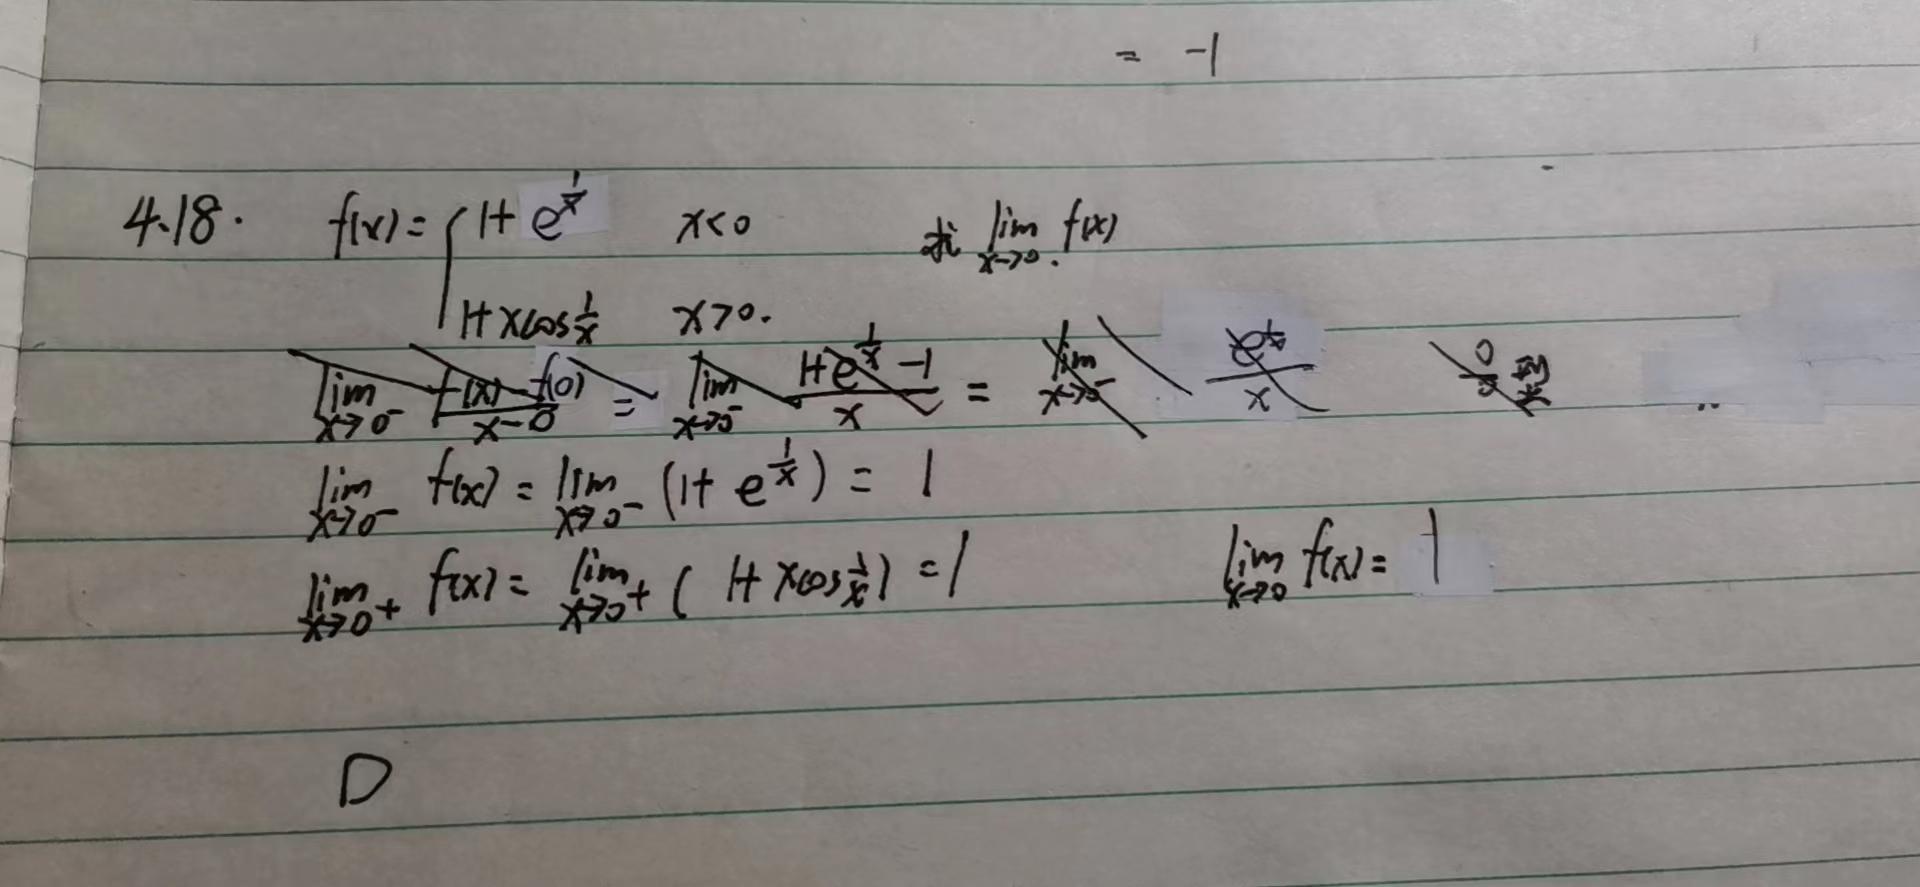 = -1
4.18. f(x)= { 1+e^{1/x} x<0 求 lim_{x→0} f(x)
1+xcos 1/x x>0.
lim_{x→0⁻} (f(x)-f(0))/(x-0) = lim_{x→0⁻} (1+e^{1/x}-1)/x = lim_{x→0⁻} e^{1/x}/x 0/0
lim_{x→0⁻} f(x) = lim_{x→0⁻} (1+e^{1/x}) = 1
lim_{x→0⁺} f(x) = lim_{x→0⁺} (1+xcos 1/x) = 1 lim_{x→0} f(x) = 1
D